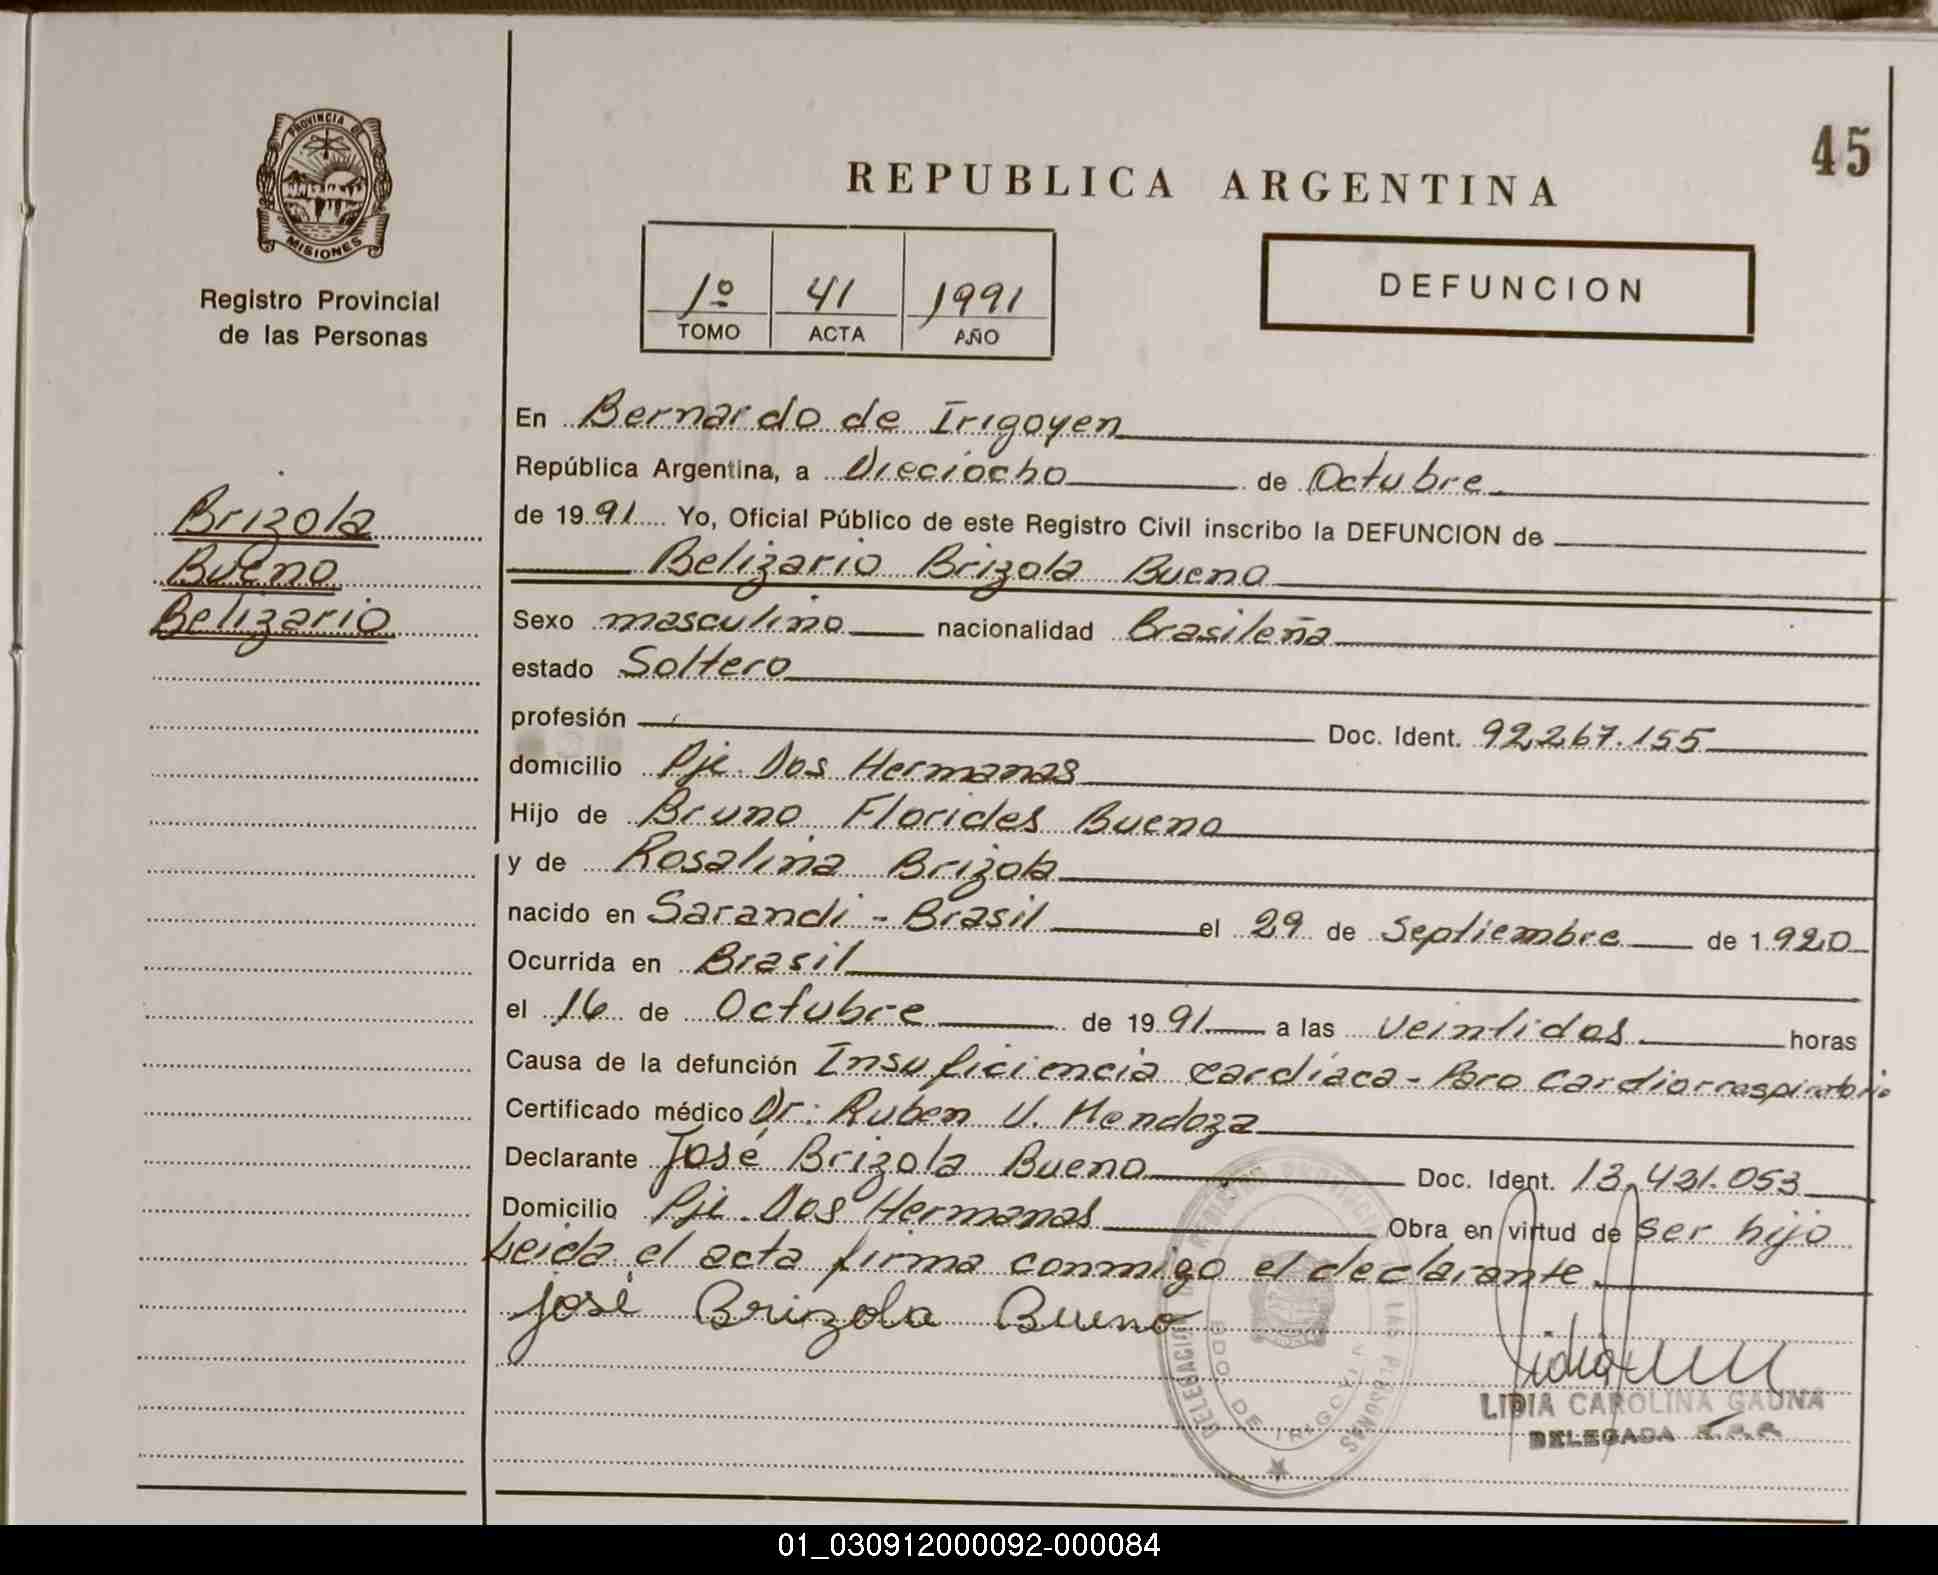 PROVINCIA DE
MISIONES
Registro Provincial
de las Personas
Brizola
Bueno
Belizario
45
REPUBLICA ARGENTINA
1º 41 1991
TOMO ACTA AÑO
DEFUNCION
En Bernardo de Irigoyen
República Argentina, a Dieciocho de Octubre
de 1991 Yo, Oficial Público de este Registro Civil inscribo la DEFUNCION de
Belizario Brizola Bueno
Sexo masculino nacionalidad Brasileña
estado Soltero
profesión Doc. Ident. 92.267.155
domicilio Pje. Dos Hermanas
Hijo de Bruno Florides Bueno
y de Rosalina Brizola
nacido en Sarandi - Brasil el 29 de Septiembre de 1920
Ocurrida en Brasil
el 16 de Octubre de 1991 a las veintidos horas
Causa de la defunción Insuficiencia cardíaca - Paro cardiorrespiratorio
Certificado médico Dr: Ruben V. Mendoza
Declarante José Brizola Bueno Doc. Ident. 13.431.053
Domicilio Pje. Dos Hermanas Obra en virtud de ser hijo
Leida el acta firma conmigo el declarante.
José Brizola Bueno
LIDIA CAROLINA GAUNA
DELEGADA
DE IRIGOYEN
01_030912000092-000084